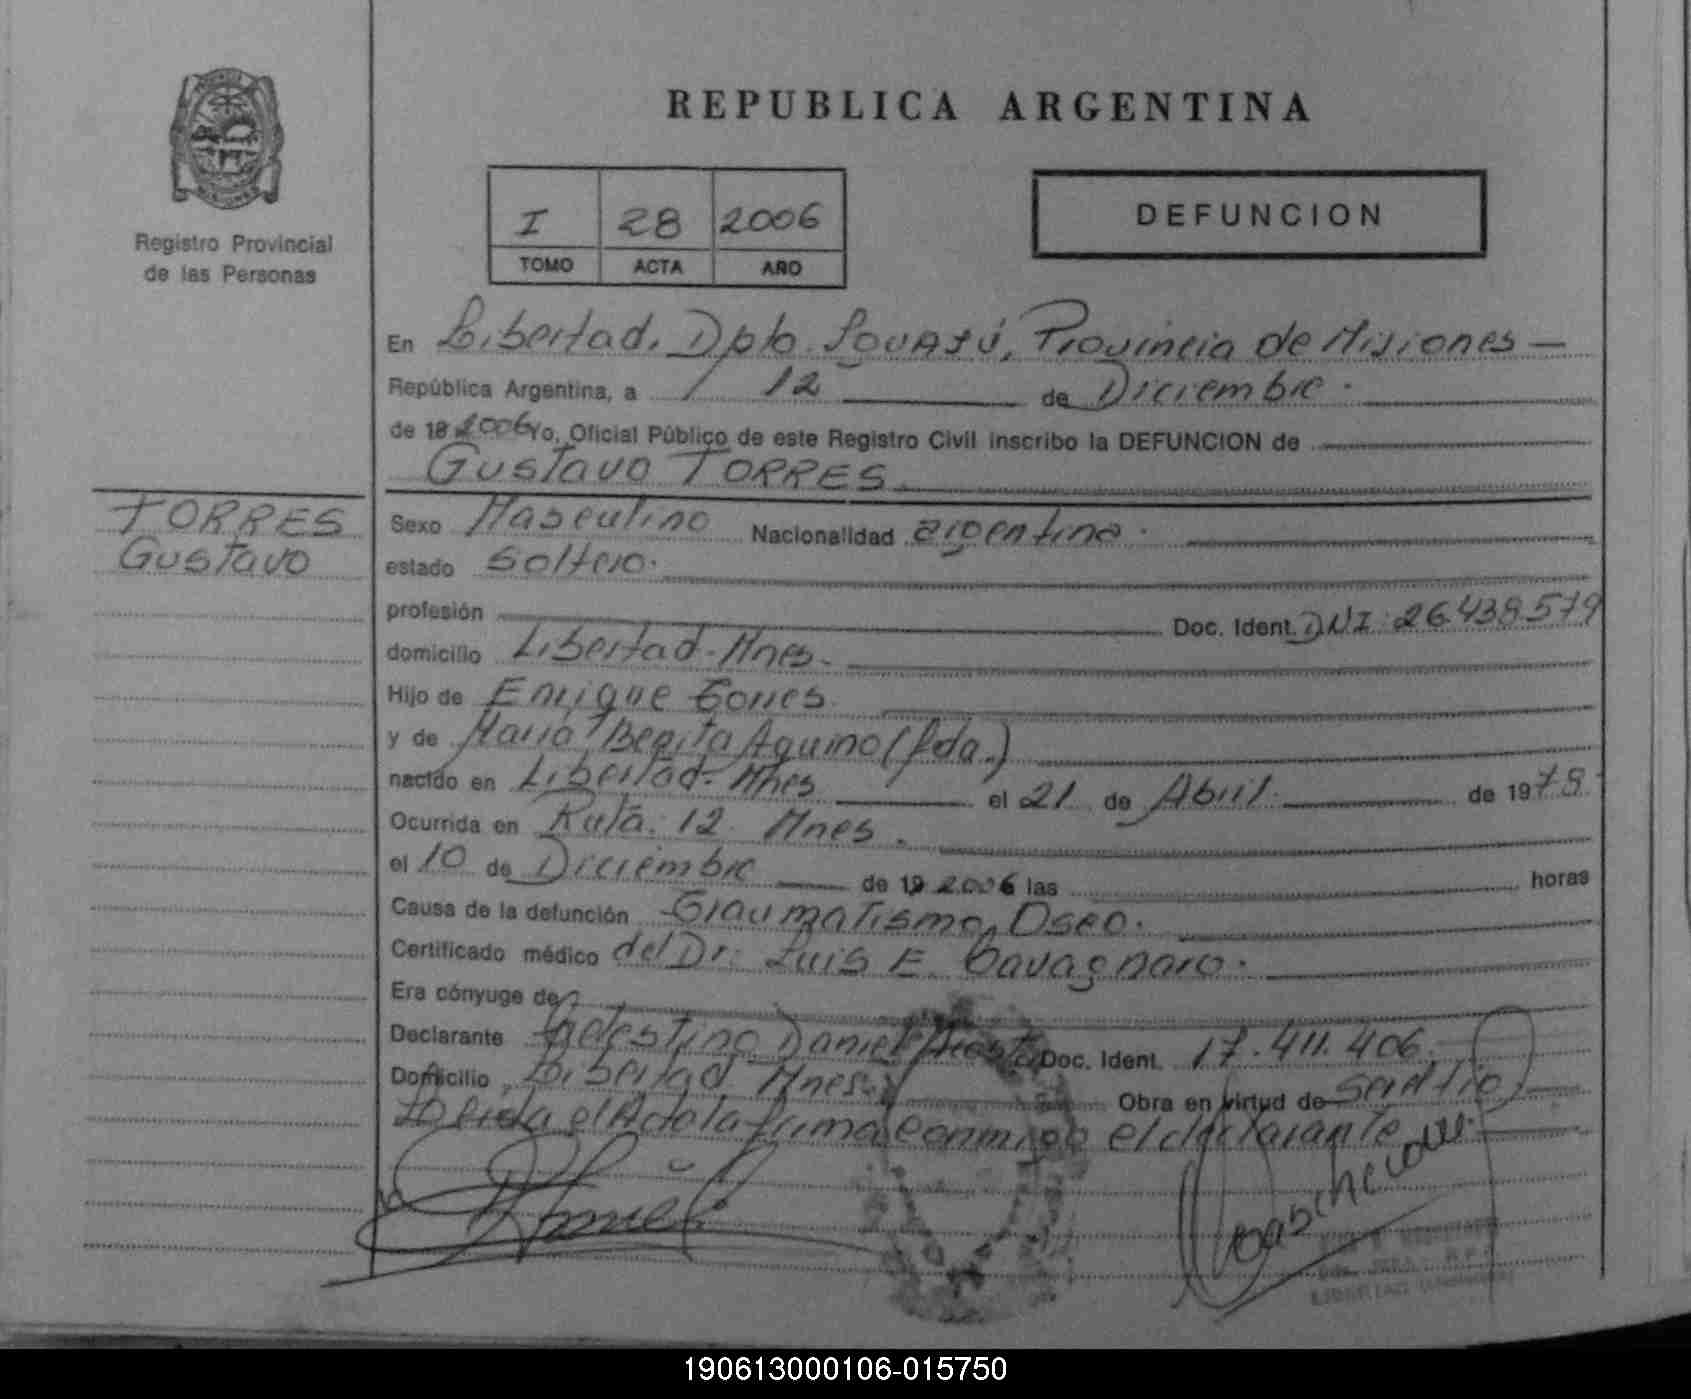 REPUBLICA ARGENTINA
MISIONES
Registro Provincial
de las Personas
I 28 2006
TOMO ACTA AÑO
DEFUNCION
En Libertad, Dpto. Iguazú, Provincia de Misiones —
República Argentina, a 12 de Diciembre.
de 19 2006 Yo, Oficial Público de este Registro Civil inscribo la DEFUNCION de
Gustavo TORRES
TORRES
Gustavo
Sexo Masculino Nacionalidad argentina.
estado soltero.
profesión Doc. Ident. DNI. 26.438.579
domicilio Libertad-Mnes.
Hijo de Enrique Torres
y de María Benita Aquino (fda.)
nacido en Libertad-Mnes el 21 de Abril de 1978
Ocurrida en Ruta. 12. Mnes.
el 10 de Diciembre de 19 2006 las horas
Causa de la defunción Traumatismo Oseo.
Certificado médico del Dr. Luis E. Cavagnaro.
Era cónyuge de
Declarante Celestino Daniel Acosta Doc. Ident. 17.411.406
Domicilio Libertad Mnes. Obra en virtud de
Leida el Acta la firma conmigo el declarante
LIBERTAD
190613000106-015750